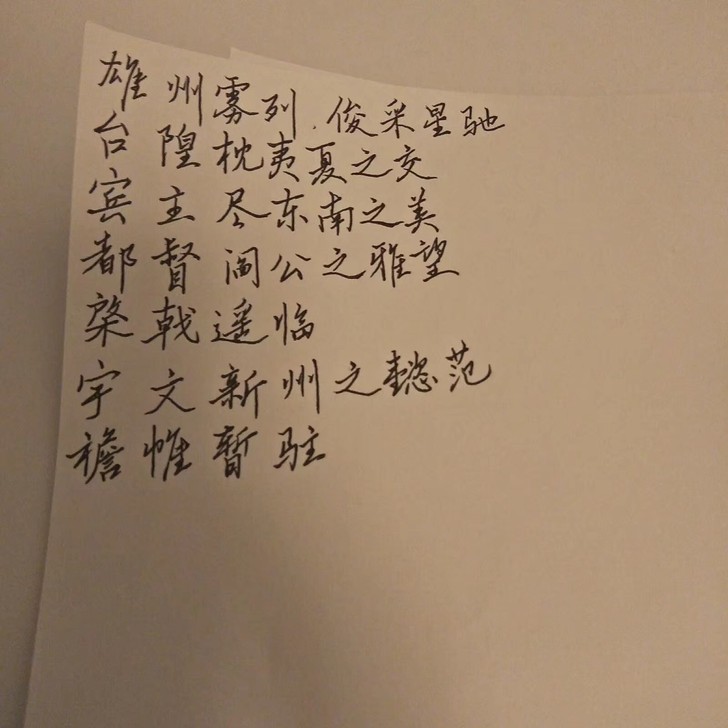 雄州雾列.俊采星驰
台隍枕夷夏之交
宾主尽东南之美
都督阎公之雅望
棨戟遥临
宇文新州之懿范
襜帷暂驻